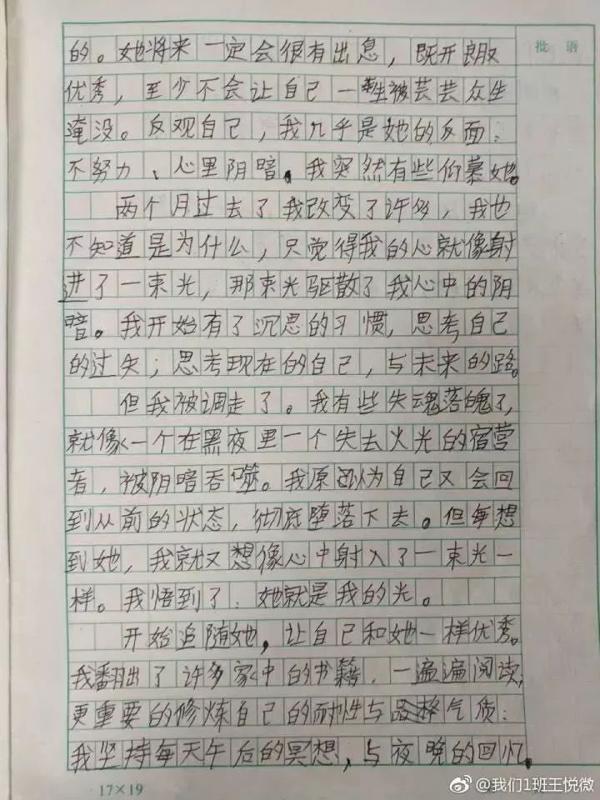 批 语
的。她将来一定会很有出息，既开朗又
优秀，至少不会让自己一生被芸芸众生
淹没。反观自己，我几乎是她的反面：
不努力、心里阴暗。我突然有些仰慕她。
两个月过去了我改变了许多，我也
不知道是为什么，只觉得我的心就像射
进了一束光，那束光驱散了我心中的阴
暗。我开始有了沉思的习惯，思考自己
的过失；思考现在的自己，与未来的路。
但我被调走了。我有些失魂落魄了，
就像一个在黑夜里一个失去火光的宿营
者，被阴暗吞噬。我原以为自己又会回
到从前的状态，彻底堕落下去。但每想
到她，我就又想像心中射入了一束光一
样。我悟到了：她就是我的光。
开始追随她，让自己和她一样优秀。
我翻出了许多家中的书籍，一遍遍阅读，
更重要的修炼自己的耐性与气质：
我坚持每天午后的冥想，与夜晚的回忆。
17×19
@我们1班王悦微